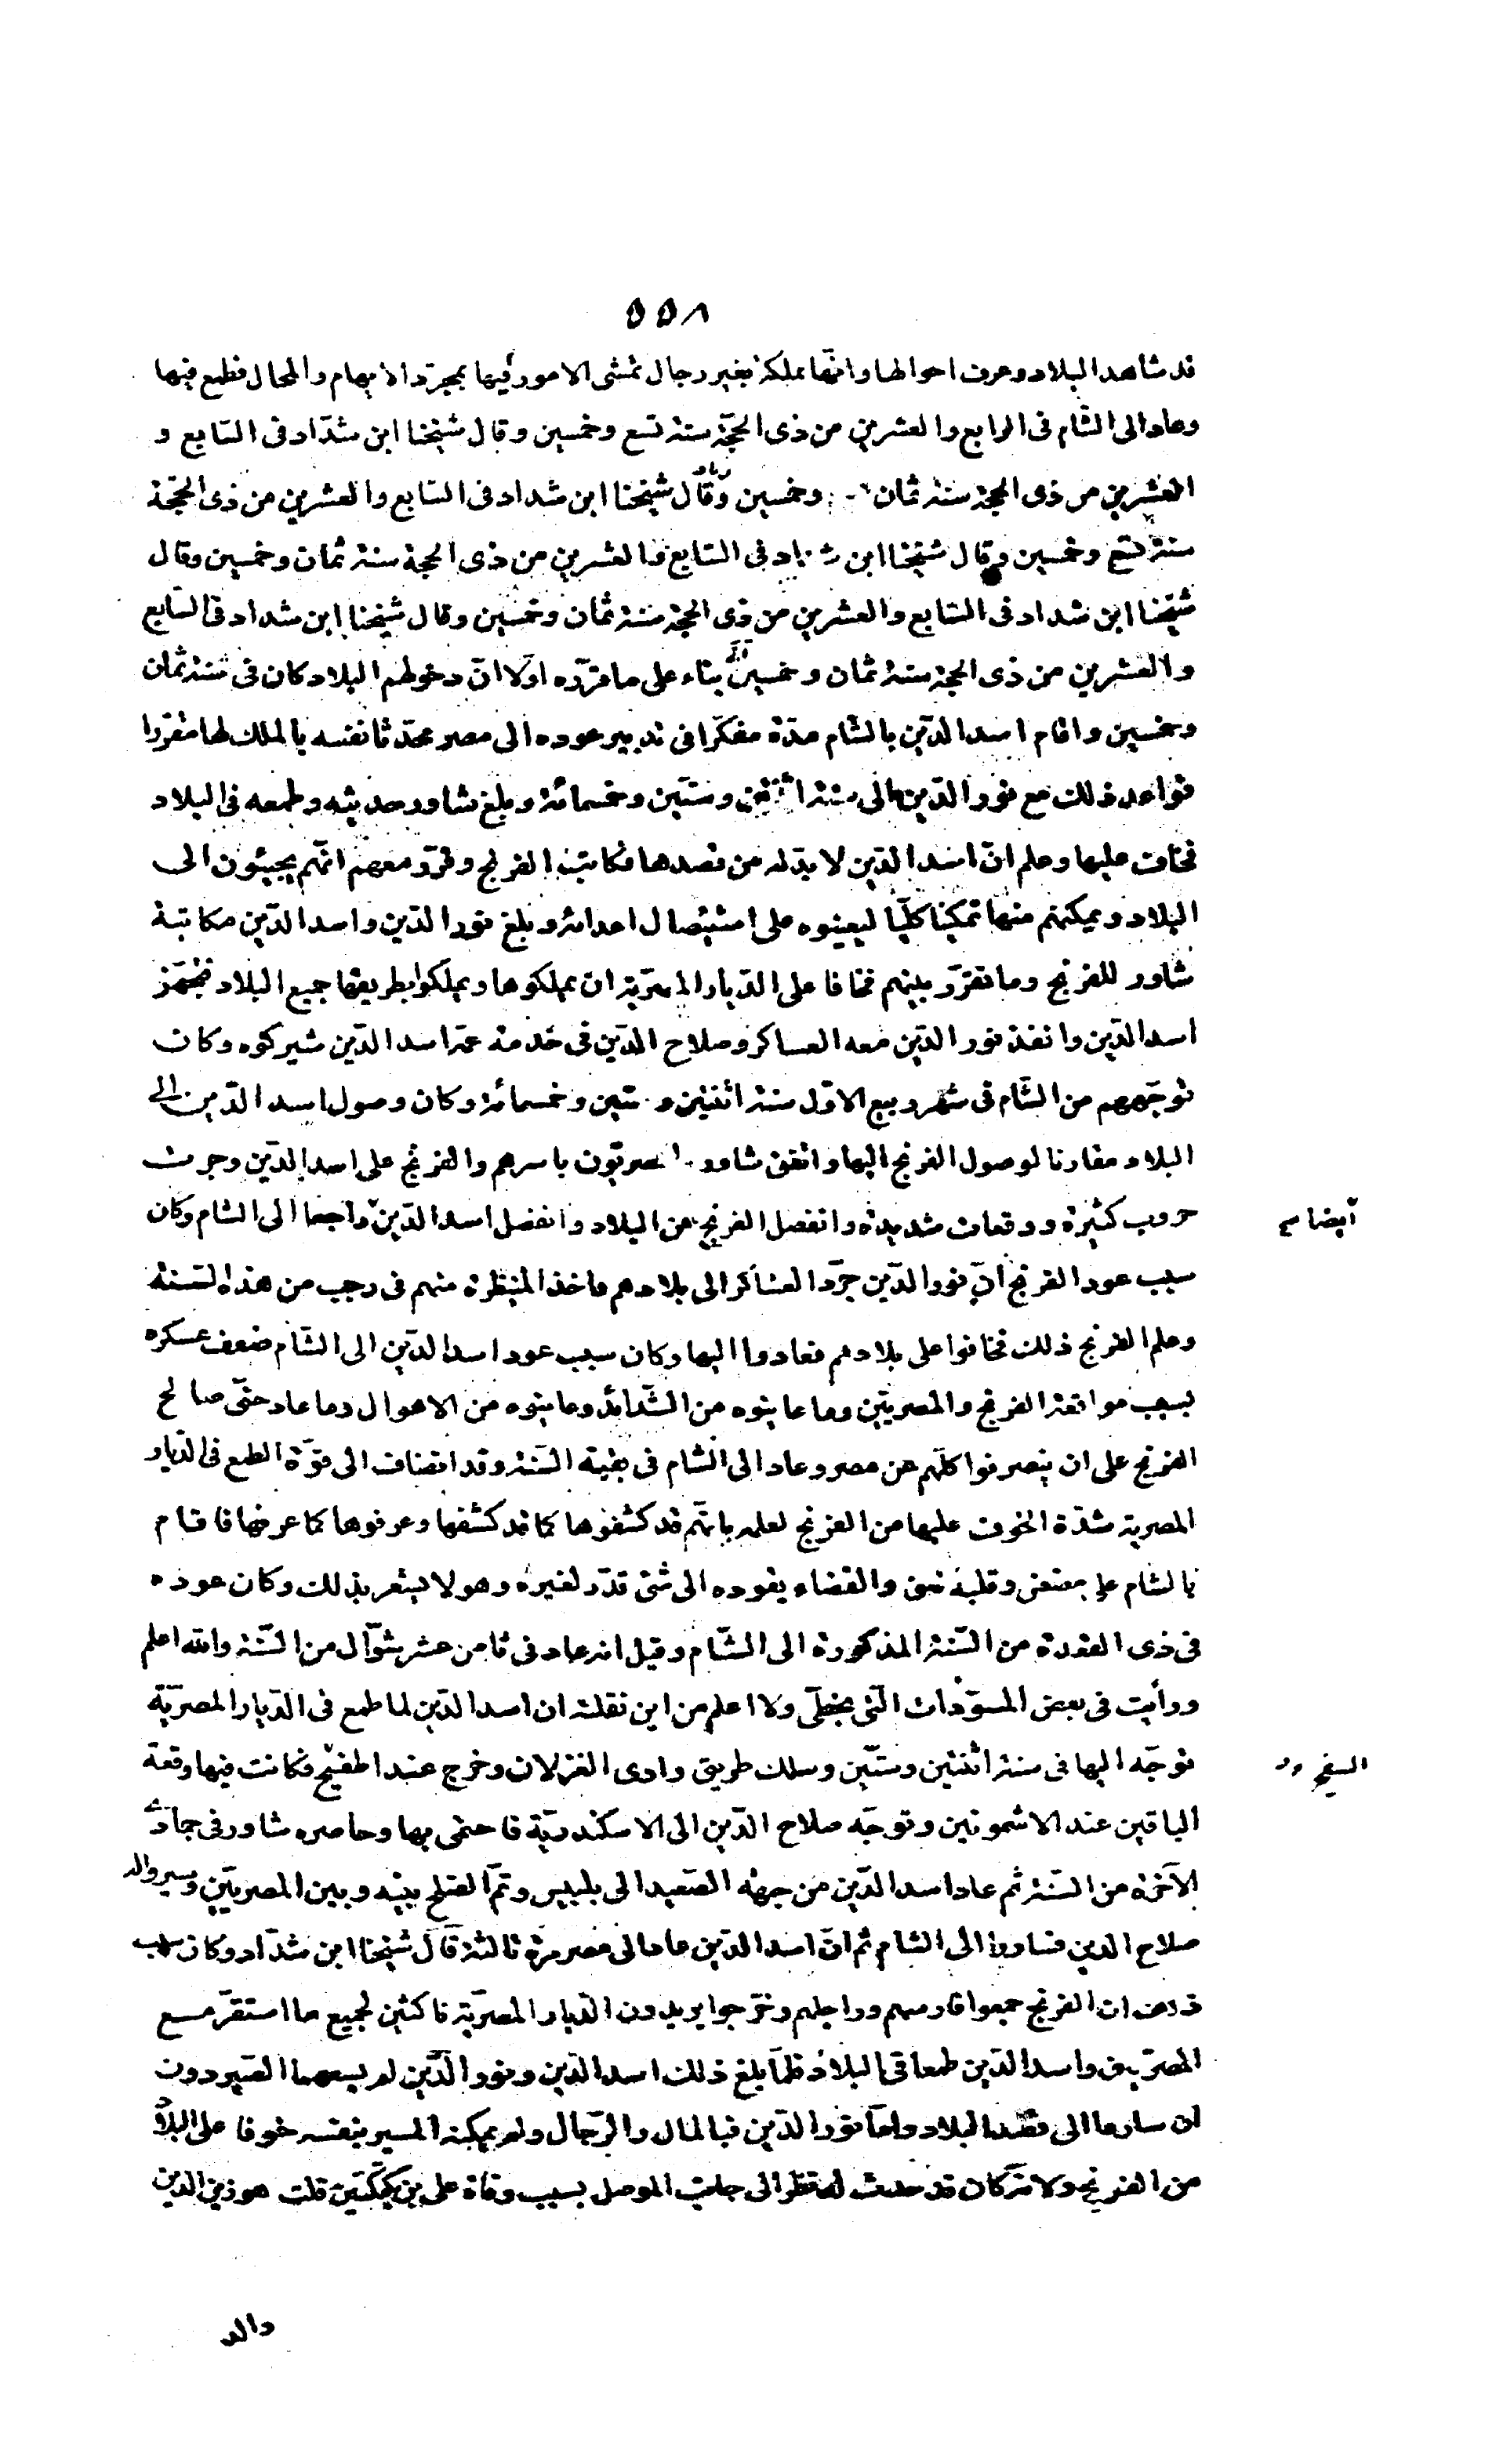 ٥٥٨
قد شاهد البلاد وعرف احوالها وانّها مملكة بغير رجال تمشى الامور فيها بمجرّد الايهام والمحال فطمع فيها
وعاد الى الشّام فى الرابع والعشرين من ذى الحجّة سنة تسع وخمسين وقال شيخنا ابن شدّاد فى السّابع و
العشرين من ذى الحجة سنة ثمان وخمسين وقال شيخنا ابن شداد فى السّابع والعشرين من ذى الحجّة
سنة تسع وخمسين وقال شيخنا ابن شداد فى السّابع والعشرين من ذى الحجة سنة ثمان وخمسين وقال
شيخنا ابن شداد فى السّابع والعشرين من ذى الحجة سنة ثمان وخمسين وقال شيخنا ابن شداد فى السّابع
والعشرين من ذى الحجة سنة ثمان وخمسين بناء على ما قرّره اوّلا انّ دخولهم البلاد كان فى سنة ثمان
وخمسين واقام اسد الدّين بالشّام مدّة مفكّرا فى تدبير عوده الى مصر محدّثا نفسه بالملك لها مقرّرا
قواعد ذلك مع نور الدّين الى سنة اثنتين وستّين وخمسمائة وبلغ شاور حديثه وطمعه فى البلاد
فخاف عليها وعلم انّ اسد الدّين لا بدّ له من قصدها فكاتب الفرنج وقرّر معهم انّهم يجيئون الى
البلاد ويمكنهم منها تمكينا كلّيا ليعينوه على استيصال اعدائه وبلغ نور الدّين واسد الدّين مكاتبة
شاور للفرنج وما تقرّر بينهم فخافا على الدّيار المصريّة ان يملكوها ويملكوا بطريقها جميع البلاد فتجهّز
اسد الدّين وانفذ نور الدّين معه العساكر وصلاح الدّين فى خدمة عمّه اسد الدّين شيركوه وكان
توجّههم من الشّام فى شهر ربيع الاوّل سنة اثنتين وستين وخمسمائة وكان وصول اسد الدّين الى
البلاد مقارنا لوصول الفرنج اليها واتفق شاور المصريّون باسرهم والفرنج على اسد الدّين وجرت
حروب كثيرة ووقعات شديدة وانفصل الفرنج عن البلاد وانفصل اسد الدّين راجعا الى الشام وكان
أيضا صح
سبب عود الفرنج انّ نور الدّين جرّد العساكر الى بلادهم واخذ المنيطرة منهم فى رجب من هذه السّنة
وعلم الفرنج ذلك فخافوا على بلادهم فعادوا اليها وكان سبب عود اسد الدّين الى الشّام ضعف عسكره
بسبب مواقعة الفرنج والمصريّين وما عاينوه من الشّدائد وعاينوه من الاهوال وما عاد حتّى صالح
الفرنج على ان ينصرفوا كلّهم عن مصر وعاد الى الشّام فى بقية السّنة وقد انضاف الى قوّة الطمع فى الديار
المصرية شدّة الخوف عليها من الفرنج لعلمه بانّهم قد كشفوها كما قد كشفها وعرفوها كما عرفها فاقام
بالشام على مضض وقلبه قلق والقضاء يقوده الى شئ قدّر لغيره وهو لا يشعر بذلك وكان عوده
فى ذى القعدة من السّنة المذكورة الى الشّام وقيل انه عاد فى ثامن عشر شوّال من السّنة والله اعلم
ورأيت فى بعض المسوّدات الّتى بخطّى ولا اعلم من اين نقلته ان اسد الدّين لما طمع فى الدّيار المصريّة
توجّه اليها فى سنة اثنتين وستّين وسلك طريق وادى الغزلان وخرج عند اطفيح فكانت فيها وقعة
الباقين عند الاشمونين وتوجّه صلاح الدّين الى الاسكندريّة فاحتمى بها وحاصره شاور فى جمادى
الآخرة من السّنة ثم عاد اسد الدّين من جهة الصّعيد الى بلبيس وتمّ الصّلح بينه وبين المصريّين وسيروا له
صلاح الدين فساروا الى الشام ثم انّ اسد الدّين عاد الى مصر مرّة ثالثة قال شيخنا ابن شدّاد وكان سبب
ذلك ان الفرنج جمعوا فارسهم وراجلهم وخرجوا يريدون الدّيار المصريّة ناكثين لجميع ما استقرّ مع
المصريّين واسد الدّين طمعا فى البلاد فلمّا بلغ ذلك اسد الدّين ونور الدّين لم يسعهما الصّبر دون
ان سارعا الى قصد البلاد وامّا نور الدّين فبالمال والرّجال ولم يمكنه المسير بنفسه خوفا على البلاد
من الفرنج ولانّه كان قد حدث له نظر الى جانب الموصل بسبب وفاة على بن بكتكين قلت هو زين الدين
والد